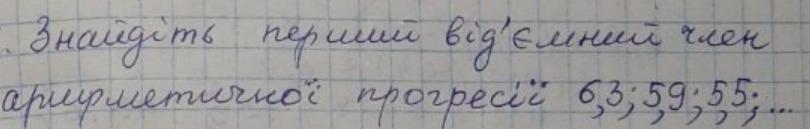 . Знайдіть перший від'ємний член
арифметичної прогресії 6,3; 5,9; 5,5; ...